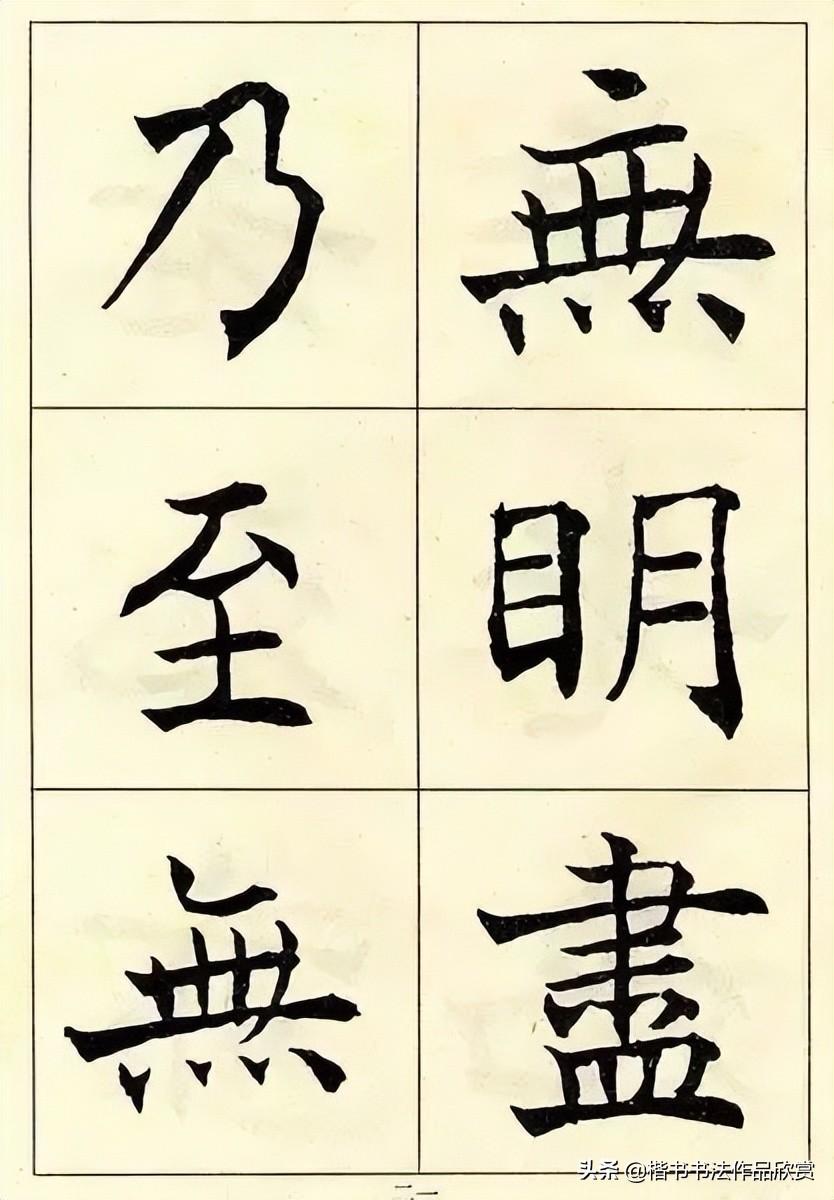 無明盡
乃至無
二一
头条 @楷书书法作品欣赏